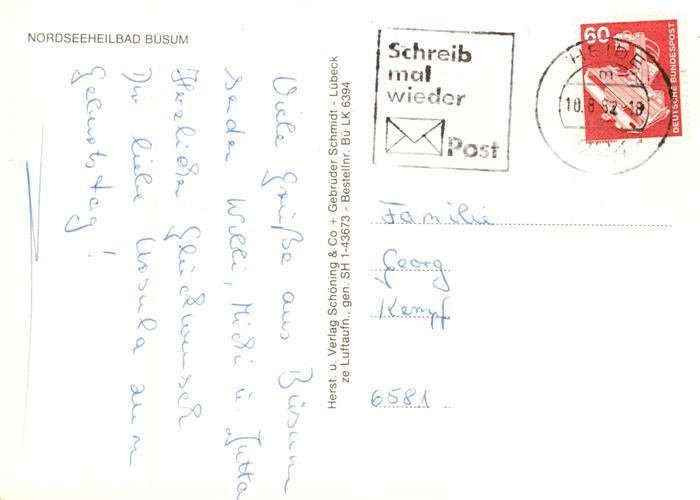 NORDSEEHEILBAD BÜSUM
Viele Grüße aus Büsum
senden Willi, Michi u. Jutta
Herzlichen Glückwunsch
Dir liebe Ursula zum
Geburtstag!
Herst. u. Verlag Schöning & Co + Gebrüder Schmidt - Lübeck
ze Luftaufn., gen. SH 1-43673 - Bestellnr. Bü LK 6394
Schreib
mal
wieder
Post
HEIDE
m
10.8.82-18
224
60
DEUTSCHE BUNDESPOST
Familie
Georg
Kempf
6581